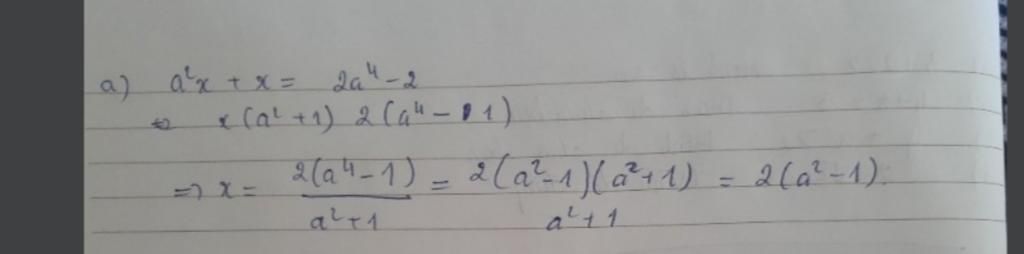 a) a²x + x = 2a⁴ - 2
⇔ x (a² + 1) 2 (a⁴ - 1)
=> x = 2(a⁴ - 1) / a² + 1 = 2(a² - 1)(a² + 1) / a² + 1 = 2(a² - 1).